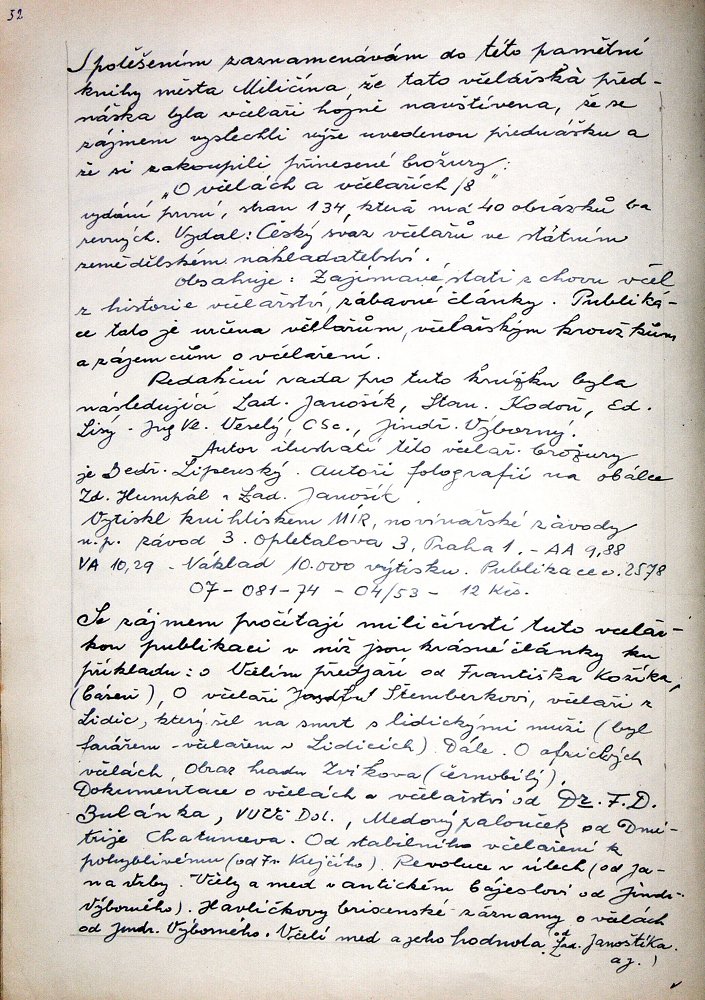 32
S potěšením zaznamenávám do této pamětní
knihy města Miličína, že tato včelařská před-
náška byla včelaři hojně navštívena, že se
zájmem vyslechli výše uvedenou přednášku a
že si zakoupili přinesené brožury:
„O včelách a včelařích /8"
vydání první, stran 134, která má 40 obrázků ba
revných. Vydal: Český svaz včelařů ve státním
zemědělském nakladatelství.
Obsahuje: Zajímavé stati z chovu včel
z historie včelařství, zábavné články. Publiká-
ce tato je určena včelařům, včelařským kroužkům
a zájemcům o včelaření.
Redakční rada pro tuto knížku byla
následující Lad. Janošík, Stan. Kodoň, Ed.
Lisý - Ing Vl. Veselý, CSc., Jindř. Výborný.
Autor ilustrací této včelař. brožury
je Bedř. Lipenský. Autoři fotografií na obálce
Zd. Humpál a Lad. Janošík.
Vytiskl knihtiskem MÍR, novinářské závody
n.p. závod 3. Opletalova 3, Praha 1. - AA 9,88
VA 10,29 - Náklad 10.000 výtisku. Publikace č. 2578
07-081-74 - 04/53 - 12 Kčs.
Se zájmem pročítají miličínstí tuto včelař-
kou publikaci v níž jsou krásné články ku
příkladu: o Včelím předjaří od Františka Kožíka,
(báseň), O včelaři Štemberkovi, včelaři z
Lidic, který šel na smrt s lidickými muži (byl
farářem - včelařem v Lidicích). Dále. O afrických
včelách, Obraz hradu Zvíkova (černobílý).
Dokumentace o včelách a včelařství od Dr. F. D.
Bulánka, VÚVč Dol., Medový palouček od Dmi-
trije Chatunceva. Od stabilního včelaření k
pohyblivému (od Fr. Krejčího). Revoluce v úlech (od Ja-
na Vrby. Včely a med v antickém bájesloví od Jindř.
Výborného). Havlíčkovy brixenské záznamy o včelách
od Jindr. Výborného. Včelí med a jeho hodnota (od
Lad. Janoštíka.
aj.)